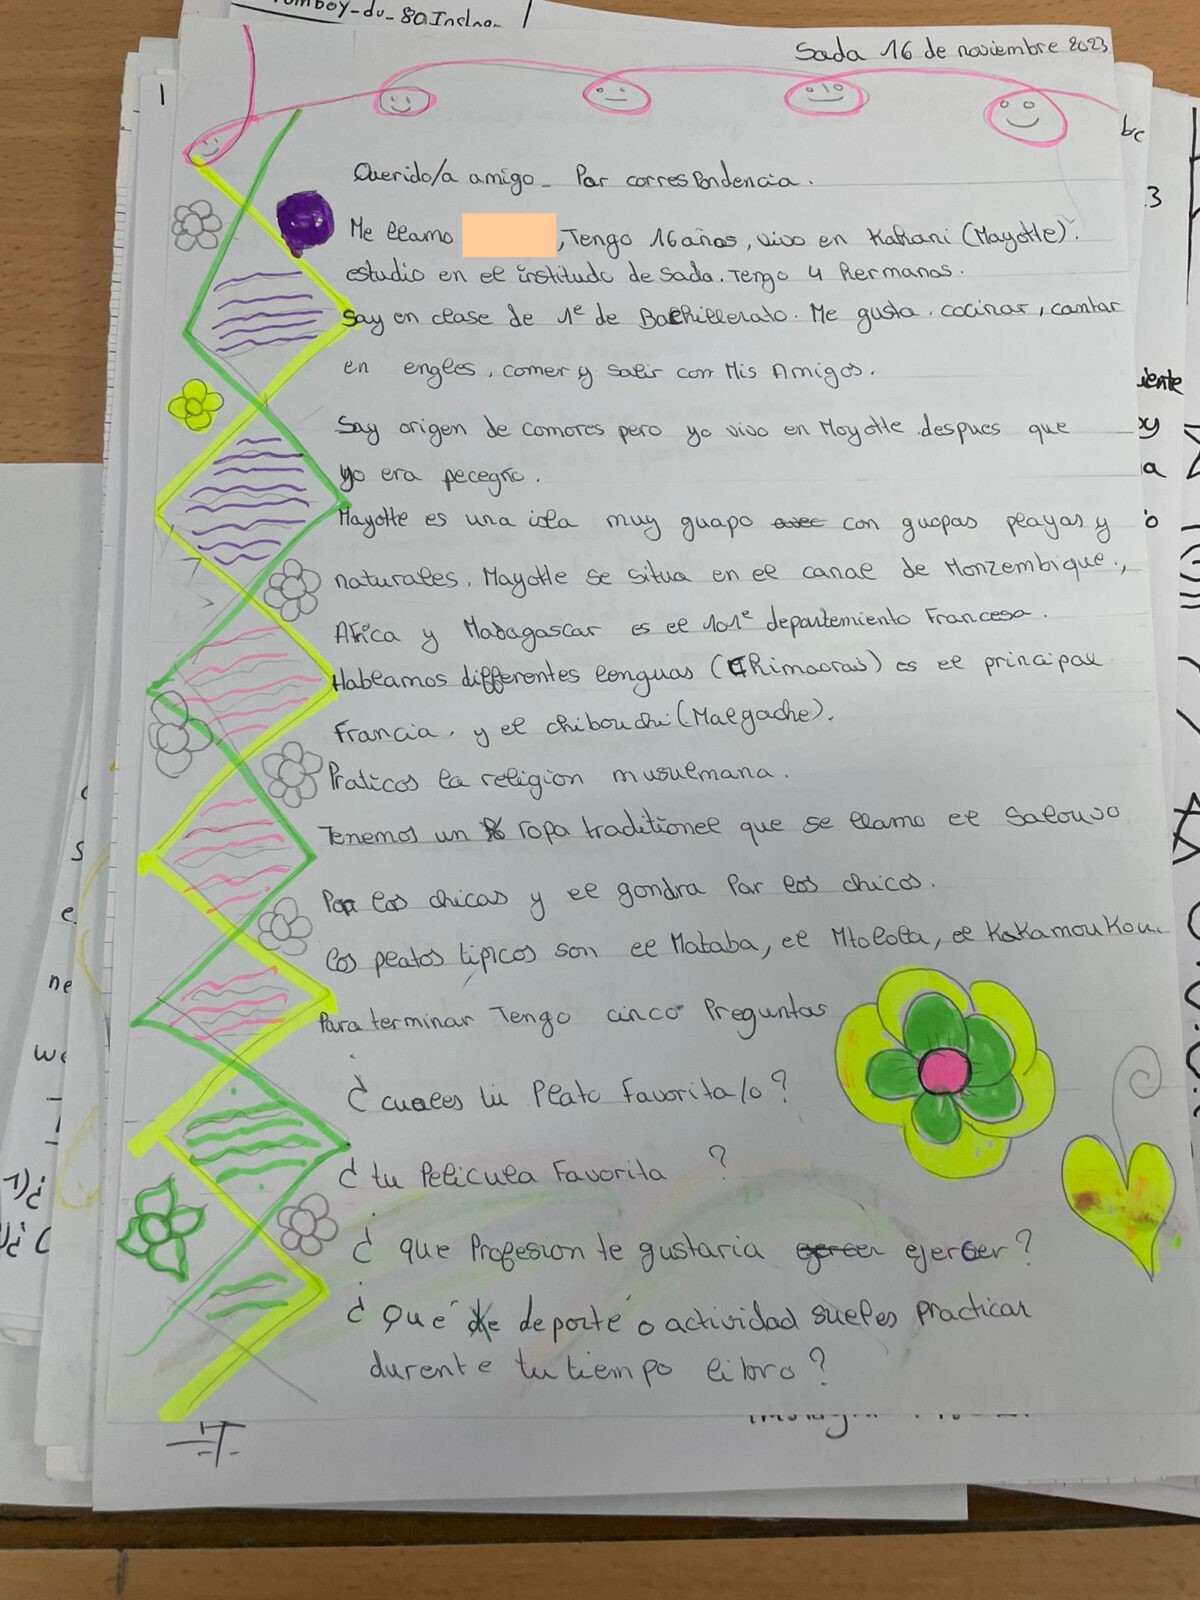 Sada 16 de noviembre 2023
Querido/a amigo - Par correspondencia.
Me llamo , Tengo 16 años, vivo en Kahani (Mayotte).
estudio en el institudo de Sada. Tengo 4 hermanas.
Say en clase de 1e de Bachillerato. Me gusta. cocinar, cantar
en engles, comer y salir con Mis Amigos.
Say origen de comores pero yo vivo en Mayotte despues que
yo era pecegño.
Mayotte es una isla muy guapo avec con guapas playas y
naturales. Mayotte se situa en el canal de Monzembique.,
Africa y Madagascar es el 101e departemiento Francesa.
Hablamos differentes lenguas (Chimaorais) es el principal
Francia. y el chibouchi (Malgache).
Praticos la religion musulmana.
Tenemos un ropa traditionel que se llamo el Salouvo
Par las chicas y el gondra Par los chicos.
los platos tipicos son el Mataba, el Mtolola, el Kakamoukou.
Para terminar Tengo cinco Preguntas
¿ cuales tu Plato Favorita/o ?
¿ tu Pelicula Favorita ?
¿ que Profesion te gustaria ejercer ?
¿ Qué de deporte o actividad sueles practicar
durente tu tiempo libro ?